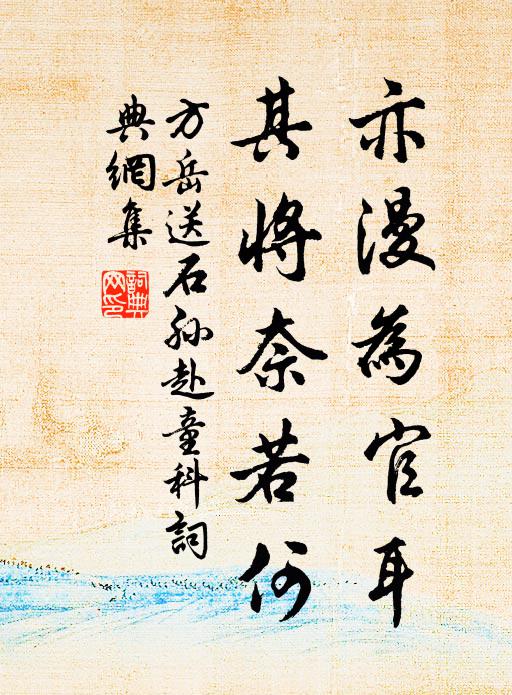 亦漫為官耳
其將奈若何
方岳送石孫赴童科詞
典網集
詞典網印